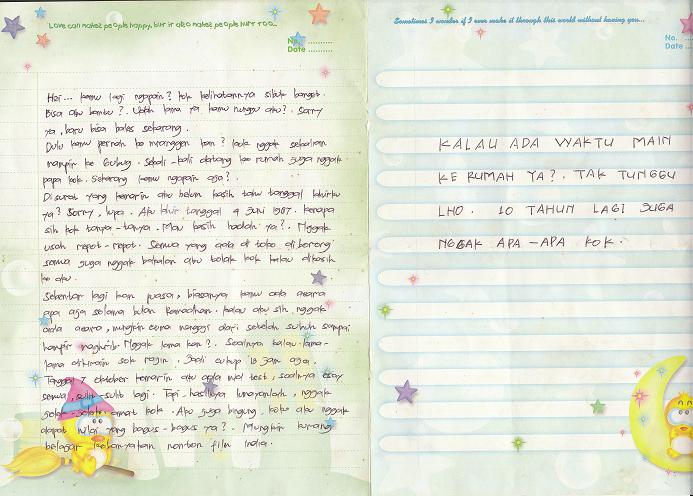 Love can makes people happy, but it also makes people hurt too...
No. ..........
Date ..........
Hei... kamu lagi ngapain? kok kelihatannya sibuk banget.
Bisa aku bantu?. Udah lama ya kamu nunggu aku?. Sorry
ya, baru bisa bales sekarang.
Dulu kamu pernah ke mranggen kan? kok nggak sekalian
mampir ke Gubug. Sekali-kali datang ke rumah juga nggak
papa kok. Sekarang kamu ngapain aja?.
Di surat yang kemarin aku belum kasih tahu tanggal lahirku
ya? Sorry, lupa. Aku lahir tanggal 4 Juni 1987. kenapa
sih kok tanya-tanya. Mau kasih hadiah ya?. Nggak
usah repot-repot. Semua yang ada di toko di borong
semua juga nggak bakalan aku tolak kok kalau dikasih
ke aku.
Sebentar lagi kan puasa, biasanya kamu ada acara
apa aja selama bulan Ramadhan. kalau aku sih nggak
ada acara, mungkin cuma nanggi dari setelah subuh sampai
hampir maghrib. Nggak lama kan?. Soalnya kalau lama-
lama dikirain sok rajin. Jadi cukup 13 jam aja.
Tanggal 7 oktober kemarin aku ada mid test, soalnya esay
semua, sulit-sulit lagi. Tapi hasilnya lumayanlah, nggak
jelek-jelek amat kok. Aku juga bingung, kok aku nggak
dapat nilai yang bagus-bagus ya?. Mungkin kurang
belajar kebanyakan nonton film India.
Sometimes I wonder if I ever make it through this world without having you...
No. ......
Date ......
KALAU ADA WAKTU MAIN
KE RUMAH YA?. TAK TUNGGU
LHO. 10 TAHUN LAGI JUGA
NGGAK APA-APA KOK.